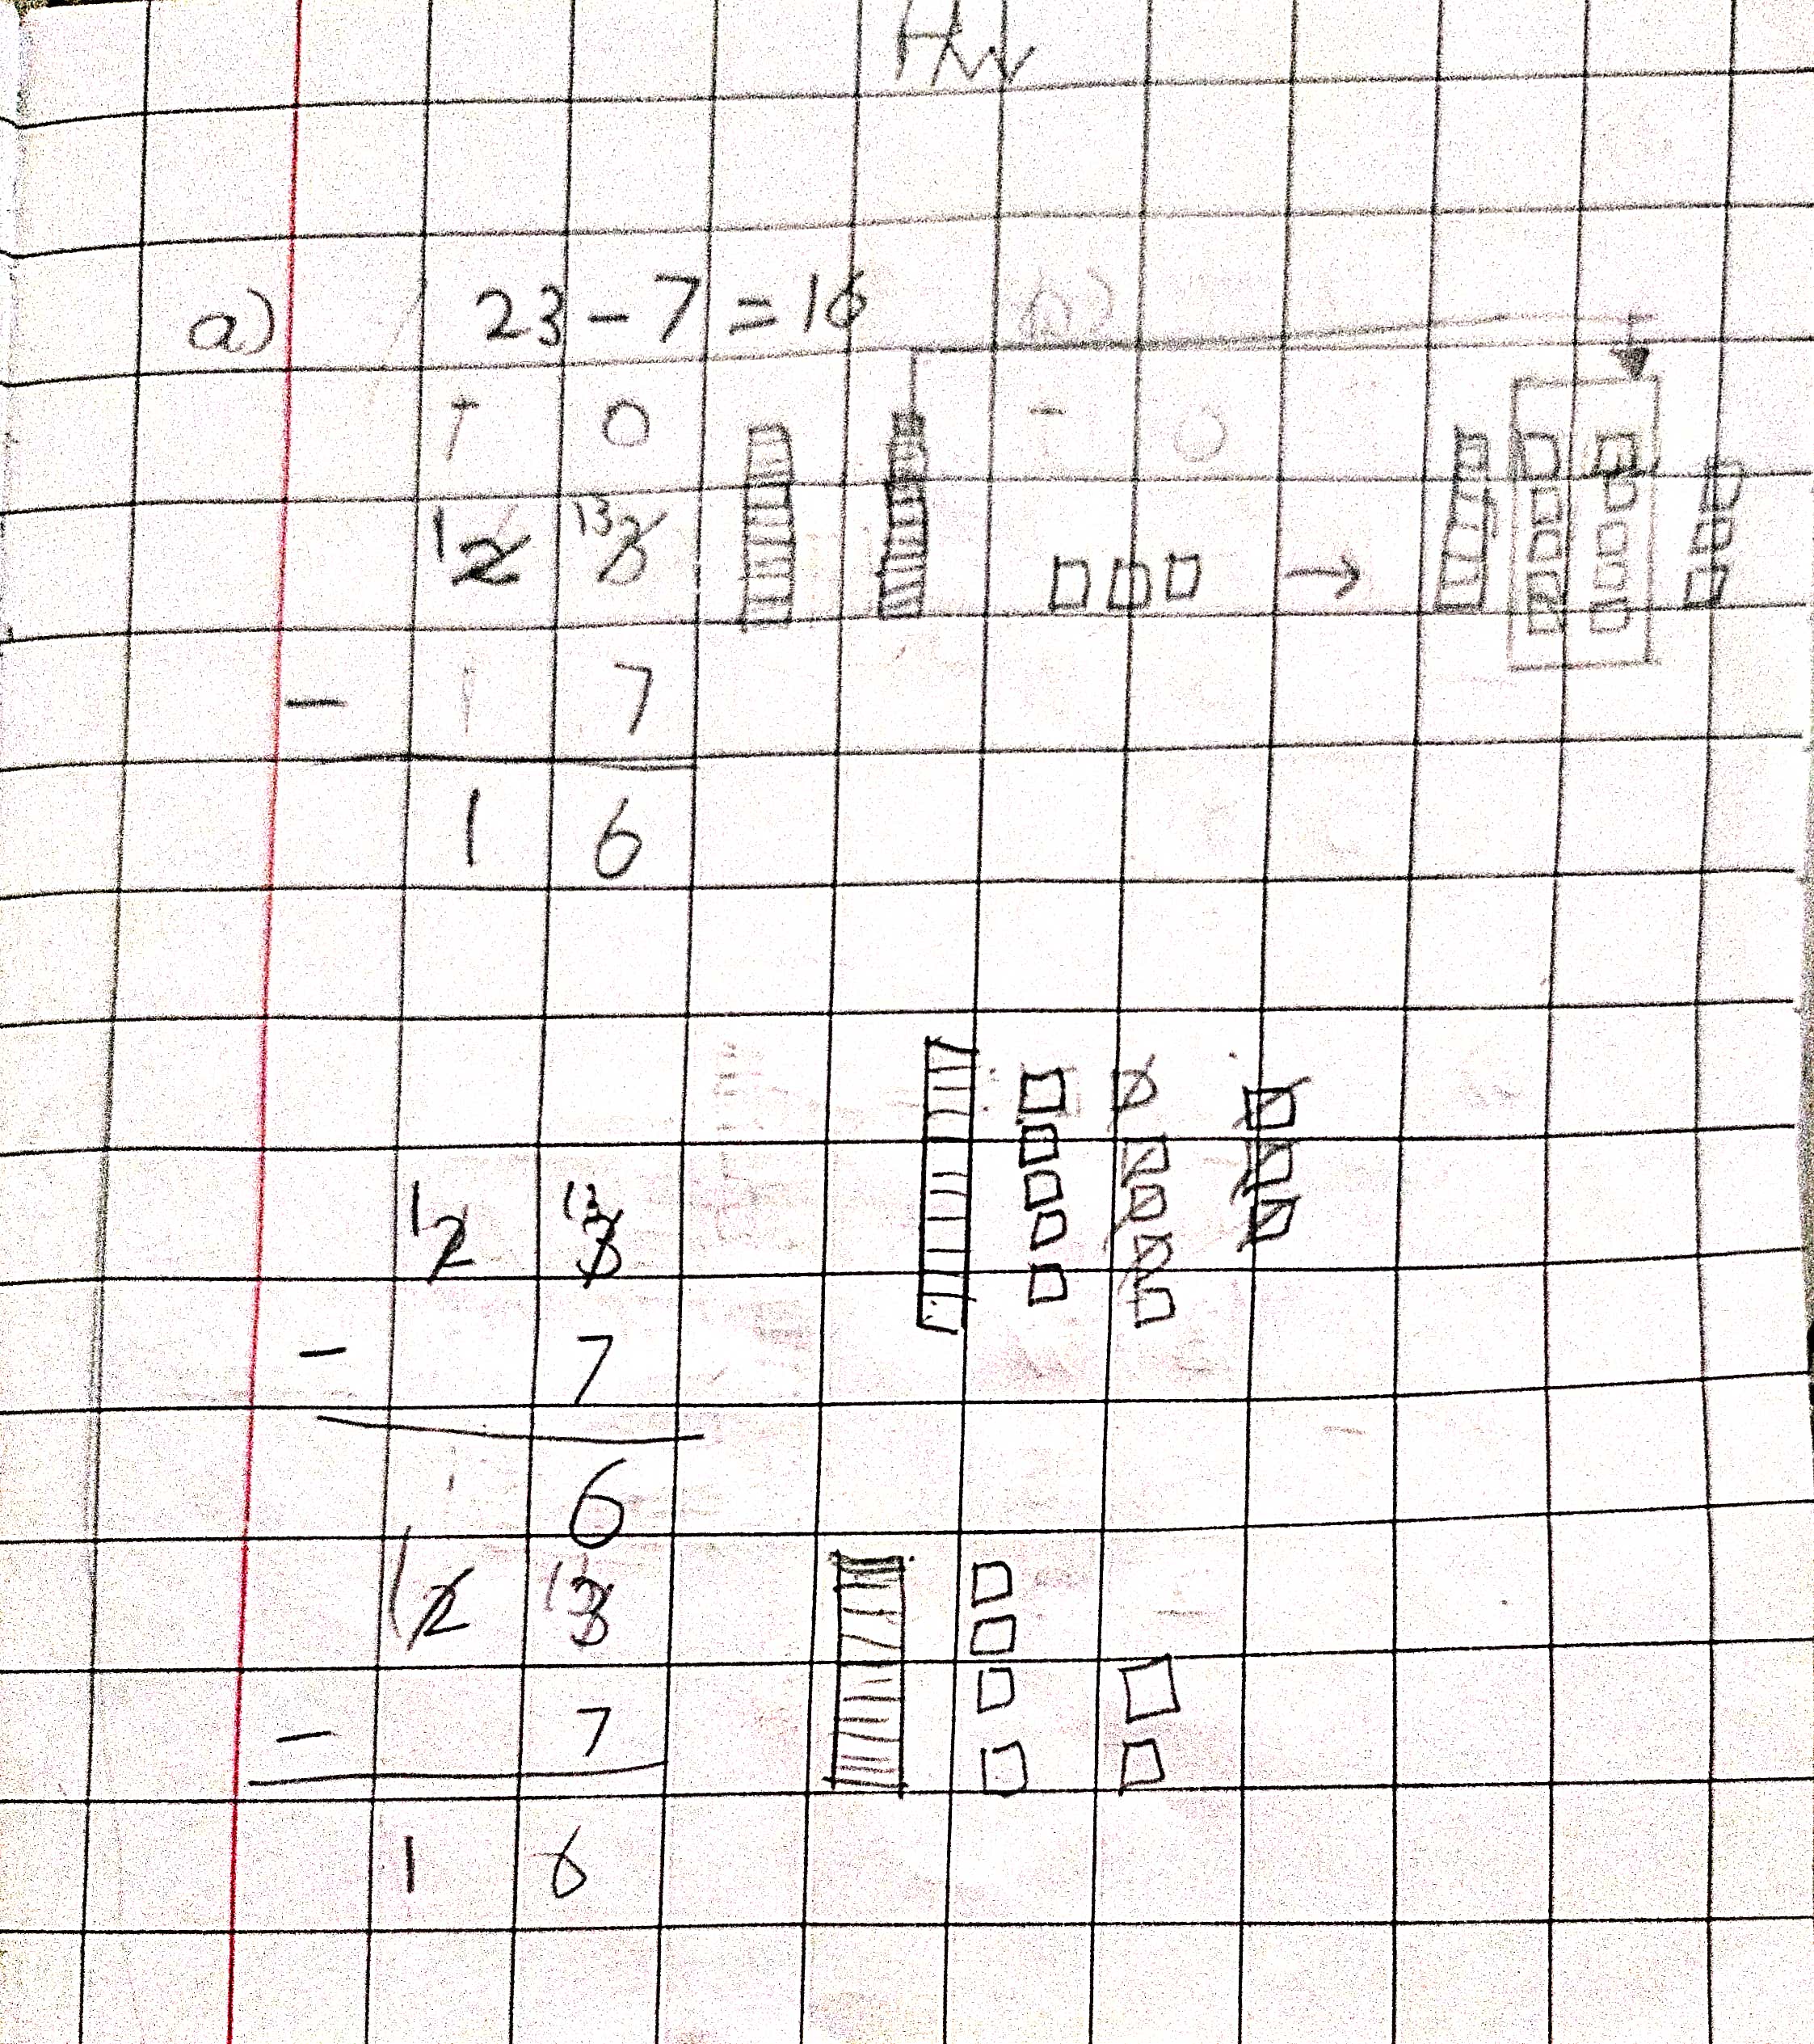 HW
a) 23 - 7 = 16 b)
T O - O
1 2 13 3 →
- 1 7
1 6
1 2 13 3
- 7
6
1 2 13 3
- 7
1 6